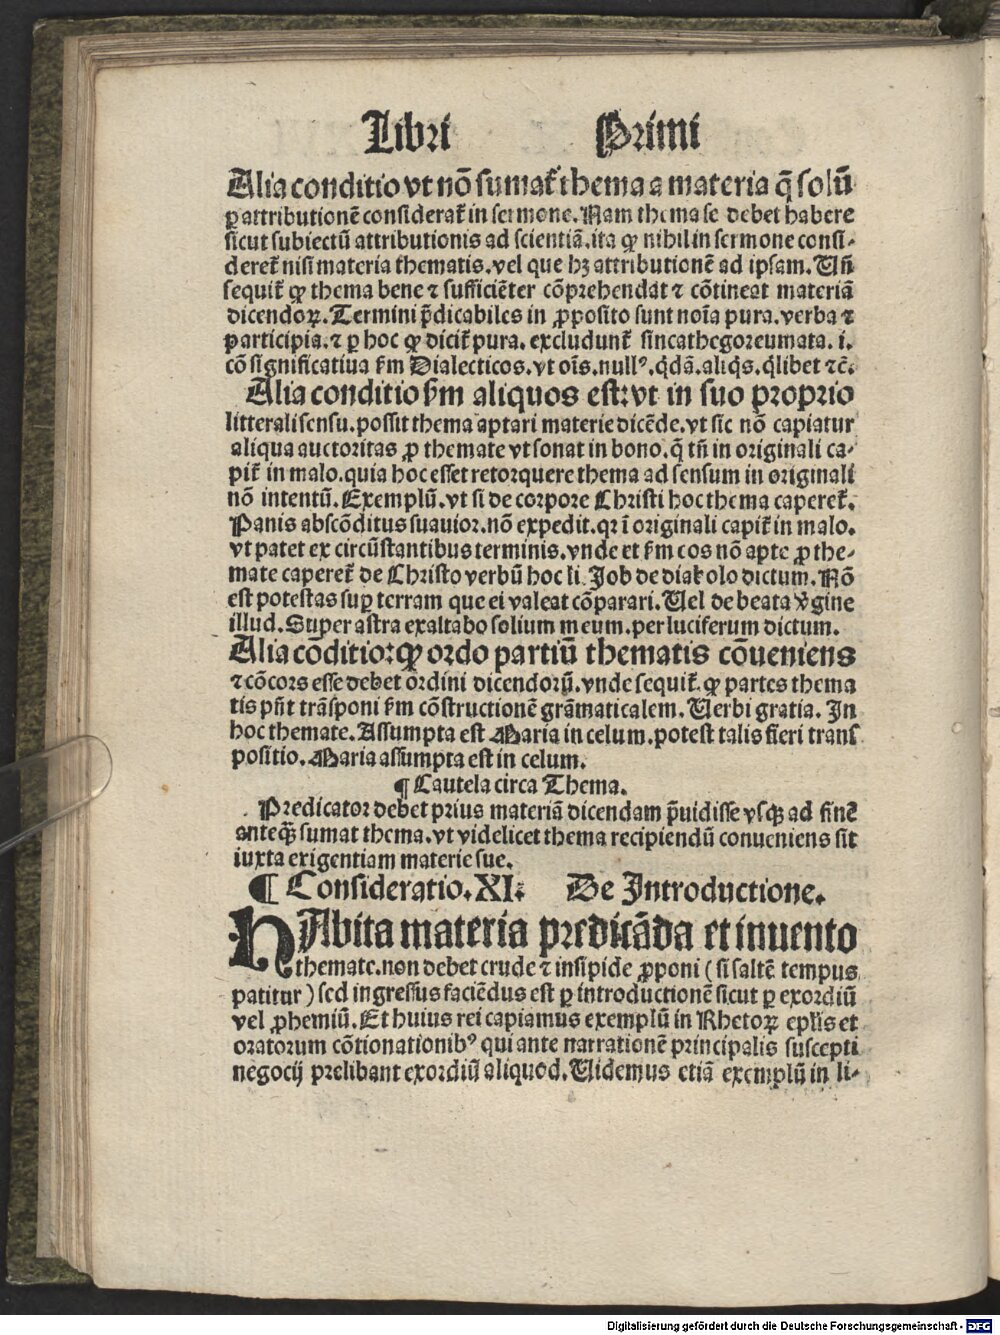 Libri Primi
Alia conditio vt nõ sumat᷑ thema a materia q̃ solũ
ꝑ attributionẽ considerat᷑ in sermone. Nam thema se debet habere
sicut subiectũ attributionis ad scientiã. ita ꝙ nihil in sermone consi-
deret᷑ nisi materia thematis. vel que hꝫ attributionẽ ad ipsam. Vñ
sequit᷑ ꝙ thema bene ⁊ sufficiẽter cõprehendat ⁊ cõtineat materiã
dicendoꝝ. Termini p̃dicabiles in ꝓposito sunt noĩa pura. verba ⁊
participia. ⁊ ꝑ hoc ꝙ dicit᷑ pura. excludunt᷑ sincathegoreumata. i.
cõsignificatiua ẜm Dialecticos. vt oĩs. nullꝰ. q̃dã. aliq̃s. q̃libet ⁊c̃.
Alia conditio ẜm aliquos est: vt in suo proprio
litterali sensu. possit thema aptari materie dicẽde. vt sic nõ capiatur
aliqua auctoritas ꝓ themate vt sonat in bono. q̃ tñ in originali ca-
pit᷑ in malo. quia hoc esset retorquere thema ad sensum in originali
nõ intentũ. Exemplũ. vt si de corpore Christi hoc thema caperet᷑.
Panis abscõditus suauior. nõ expedit. qꝛ ĩ originali capit᷑ in malo.
vt patet ex circũstantibus terminis. vnde et ẜm eos nõ apte ꝓ the-
mate caperet᷑ de Christo verbũ hoc li. Job de diabolo dictum. Nõ
est potestas suꝑ terram que ei valeat cõparari. Uel de beata v̓gine
illud. Super astra exaltabo solium meum. per luciferum dictum.
Alia cõditio: ꝙ ordo partiũ thematis cõueniens
⁊ cõcors esse debet ordini dicendorũ. vnde sequit᷑. ꝙ partes thema
tis pñt trãsponi ẜm cõstructionẽ grãmaticalem. Uerbi gratia. In
hoc themate. Assumpta est Maria in celum. potest talis fieri trans
positio. Maria assumpta est in celum.
¶ Cautela circa Thema.
Predicator debet prius materiã dicendam p̃uidisse vsqꝫ ad finẽ
anteqꝫ̃ sumat thema. vt videlicet thema recipiendũ conueniens sit
iuxta exigentiam materie sue.
¶ Consideratio. XI. De Introductione.
HAbita materia predicãda et inuento
themate. non debet crude ⁊ insipide ꝓponi (si saltẽ tempus
patitur) sed ingressus faciẽdus est ꝑ introductionẽ sicut ꝑ exordiũ
vel ꝓhemiũ. Et huius rei capiamus exemplũ in Rhetoꝝ ep̃lis et
oratorum cõtionationibꝰ qui ante narrationẽ principalis suscepti
negocij prelibant exordiũ aliquod. Uidemus etiã exemplũ in li-
Digitalisierung gefördert durch die Deutsche Forschungsgemeinschaft - DFG